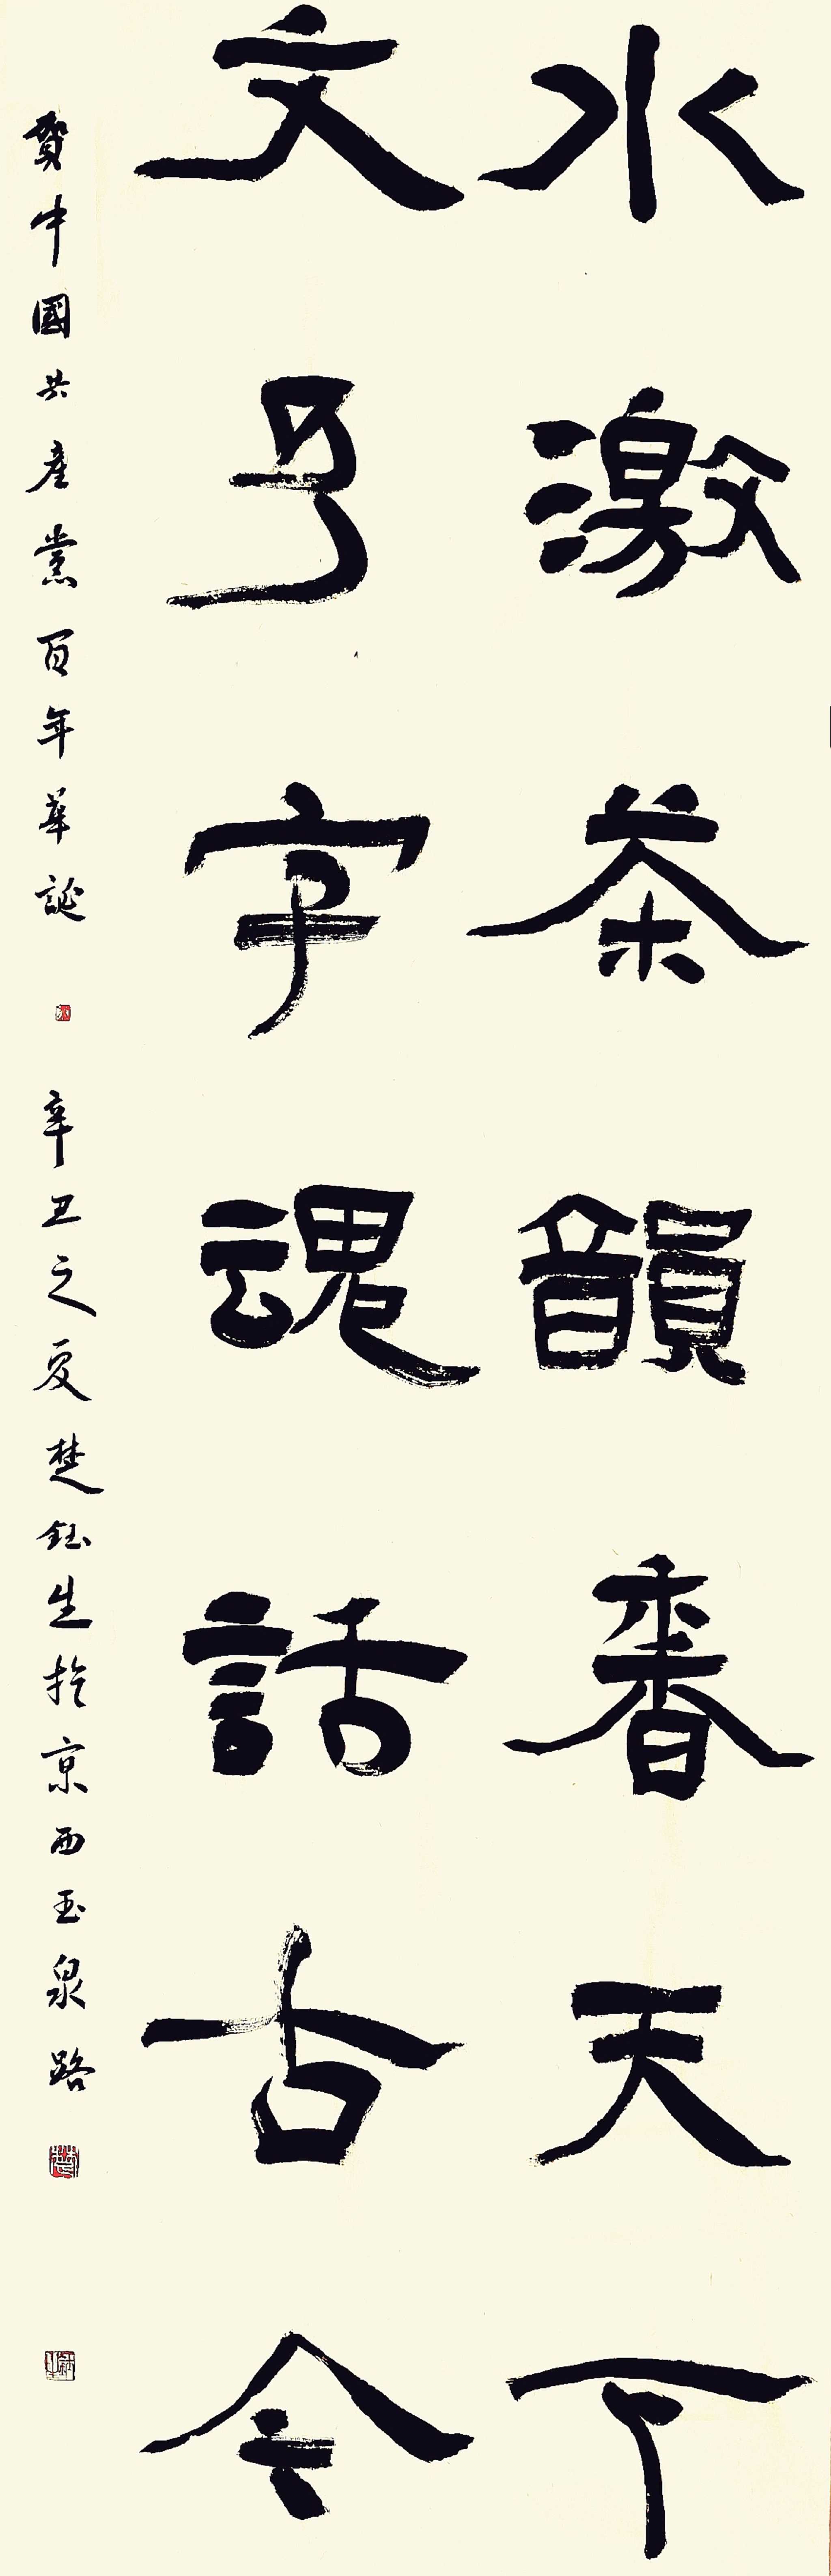 水激茶韻香天下
文弓字魂話古今
賀中國共產黨百年華誕
辛丑之夏楚鈺生於京西玉泉路